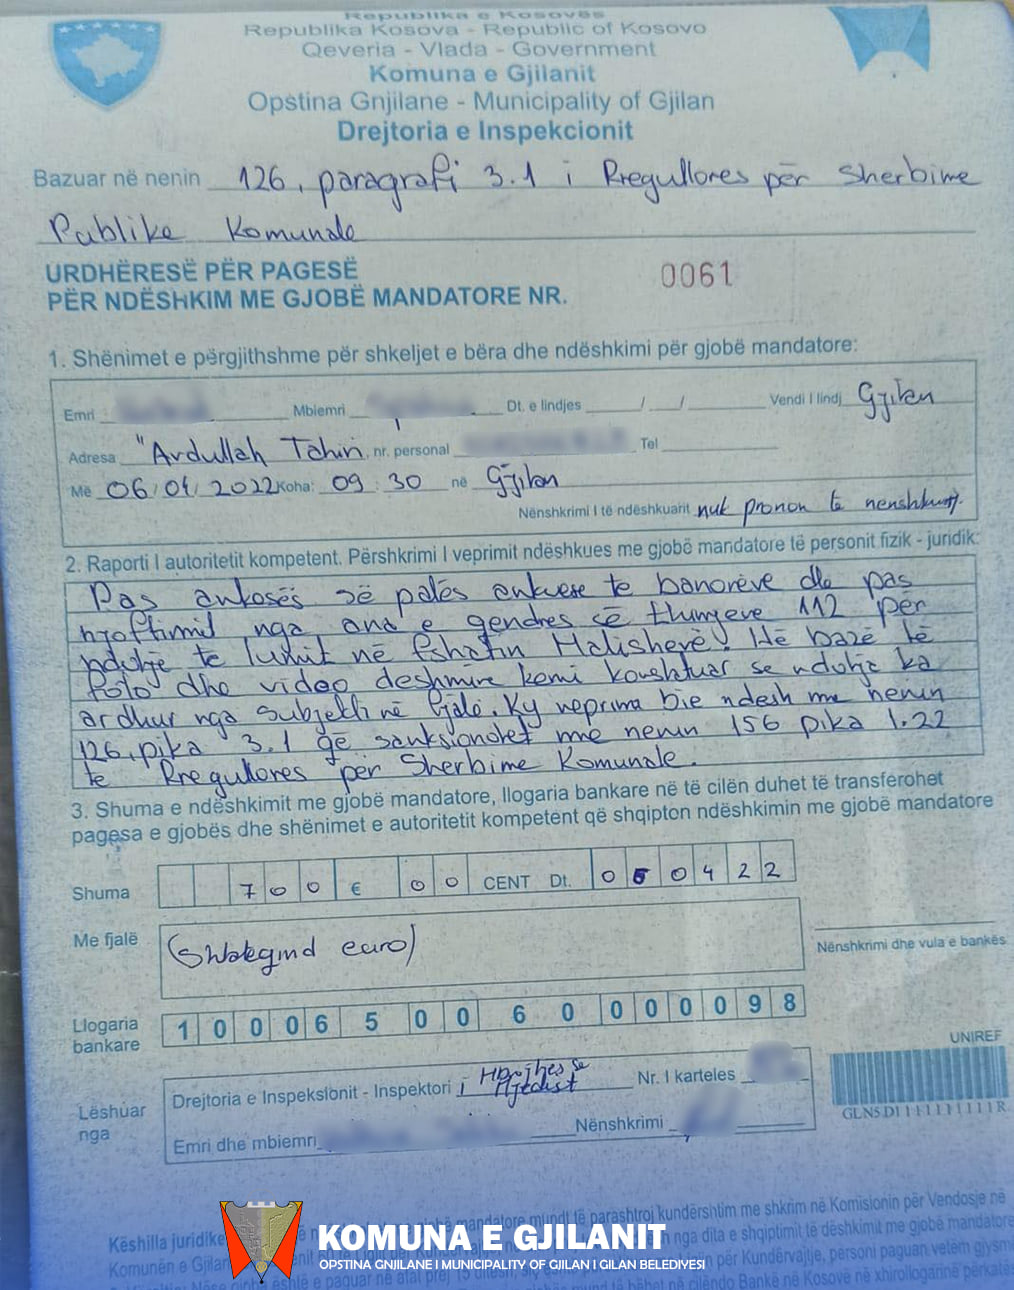 Republika e Kosovës
Republika Kosova - Republic of Kosovo
Qeveria - Vlada - Government
Komuna e Gjilanit
Opstina Gnjilane - Municipality of Gjilan
Drejtoria e Inspekcionit
Bazuar në nenin 126, paragrafi 3.1 i Rregullores për Sherbime
Publike Komunale
URDHËRESË PËR PAGESË
PËR NDËSHKIM ME GJOBË MANDATORE NR. 0061
1. Shënimet e përgjithshme për shkeljet e bëra dhe ndëshkimi për gjobë mandatore:
Emri Mbiemri Dt. e lindjes / / Vendi I lindj Gjilan
Adresa "Avdullah Tahiri nr. personal Tel
Më 06/04/2022 Koha: 09:30 në Gjilan
Nënshkrimi I të ndëshkuarit nuk pronon te nenshkruj.
2. Raporti I autoritetit kompetent. Përshkrimi I veprimit ndëshkues me gjobë mandatore të personit fizik - juridik:
Pas ankesës së palës ankuese te banorëve dhe pas
njoftimit nga ana e qendres së thirrjeve 112 për
ndotje te lumit në fshatin Malishevë. Në bazë të
foto dhe video deshmive kemi konstatuar se ndotja ka
ardhur nga subjekti në fjalë. Ky veprim bie ndesh me nenin
126, pika 3.1 qe sanksionohet me nenin 156 pika 1.22
te Rregullores per Sherbime Komunale.
3. Shuma e ndëshkimit me gjobë mandatore, llogaria bankare në të cilën duhet të transferohet
pagesa e gjobës dhe shënimet e autoritetit kompetent që shqipton ndëshkimin me gjobë mandatore
Shuma 700 € 00 CENT Dt. 050422
Me fjalë (Shtatëqind euro)
Nënshkrimi dhe vula e bankës
Llogaria bankare 1000650060000098
UNIREF
GLN5D11111111111R
Lëshuar nga
Drejtoria e Inspeksionit - Inspektori i Mbrojtjes se Mjedisit Nr. I karteles
Emri dhe mbiemri Nënshkrimi
Këshilla juridike
mandatore mund të parashtroj kundërshtim me shkrim në Komisionin për Vendosje në
Komunën e Gjilanit nga dita e shqiptimit të dëshkimit me gjobë mandatore
për Kundërvajtje, personi paguan vetëm gjysmën
KOMUNA E GJILANIT
OPSTINA GNJILANE I MUNICIPALITY OF GJILAN I GILAN BELEDIYESI